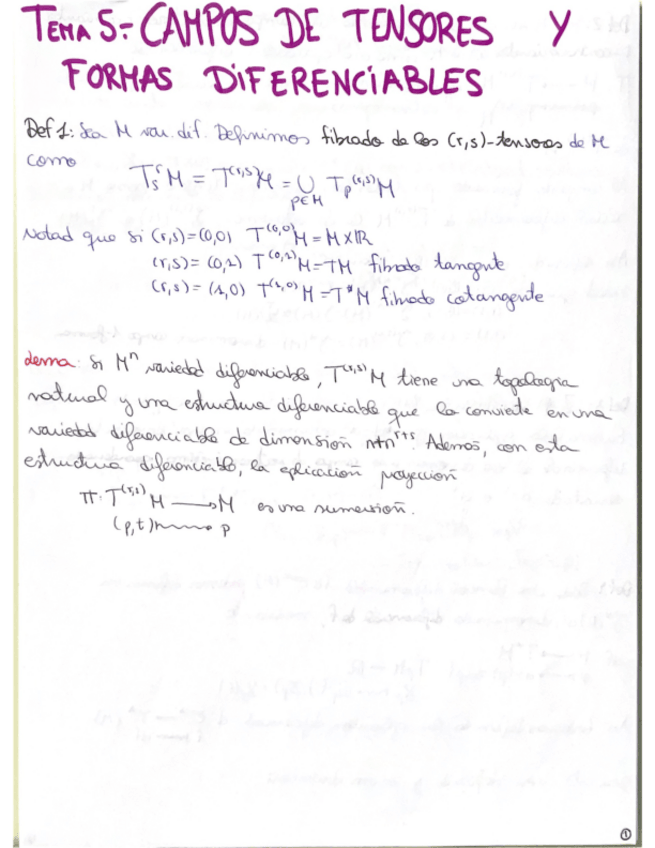 TEMA 5.- CAMPOS DE TENSORES Y
FORMAS DIFERENCIABLES
Def 1: Sea M var. dif. Definimos fibrado de los (r,s)-tensores de M
como
T_s^r M = T^(r,s) M = ∪_{p∈M} T_p^(r,s) M
Notad que si (r,s)=(0,0) T^(0,0) M = M×ℝ
(r,s)=(0,1) T^(0,1) M = TM fibrado tangente
(r,s)=(1,0) T^(1,0) M = T*M fibrado cotangente
Lema: Si M^n variedad diferenciable, T^(r,s) M tiene una topología
natural y una estructura diferenciable que la convierte en una
variedad diferenciable de dimensión n+n^{r+s}. Además, con esta
estructura diferenciable, la aplicación proyección
π: T^(r,s) M → M es una sumersión.
(p,t) ↦ p
1